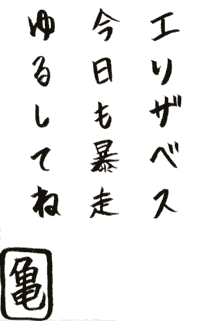 エリザベス
今日も暴走
ゆるしてね
亀